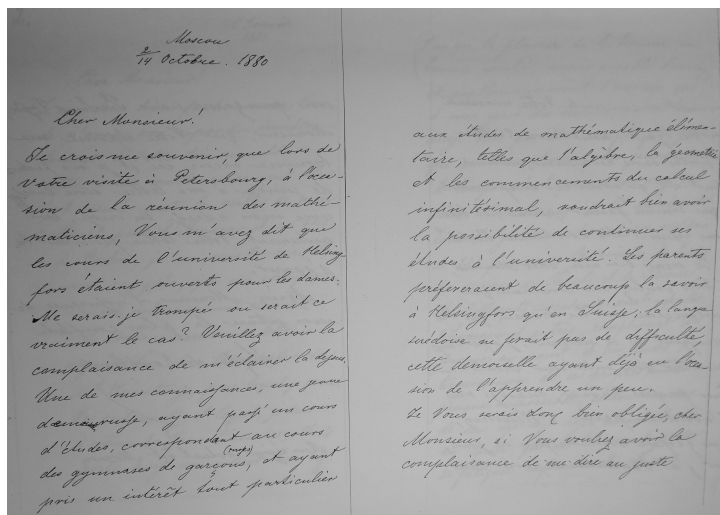 Moscou
2/14 Octobre. 1880
Cher Monsieur!
Je crois me souvenir, que lors de
Votre visite à Petersbourg, à l'occa-
sion de la réunion des mathé-
maticiens, Vous m'avez dit que
les cours de l'université de Helsing-
fors étaient ouverts pour les dames.
Me serais-je trompée ou serait ce
vraiment le cas? Veuillez avoir la
complaisance de m'éclairer là dessus.
Une de mes connaissances, une jeune
russe, ayant passé un cours
d'études, correspondant au cours
des gymnases de garçons, (russes) et ayant
pris un intérêt tout particulier
aux études de mathématique élémen-
taire, telles que l'algèbre, la géometrie
et les commencements du calcul
infinitésimal, voudrait bien avoir
la possibilité de continuer ses
études à l'université. Les parents
préfereraient de beaucoup la savoir
à Helsingfors qu'en Suisse; la langue
suédoise ne ferait pas de difficulté,
cette demoiselle ayant déjà eu l'occa-
sion de l'apprendre un peu.
Je Vous serais donc bien obligée, cher
Monsieur, si Vous vouliez avoir la
complaisance de me dire au juste